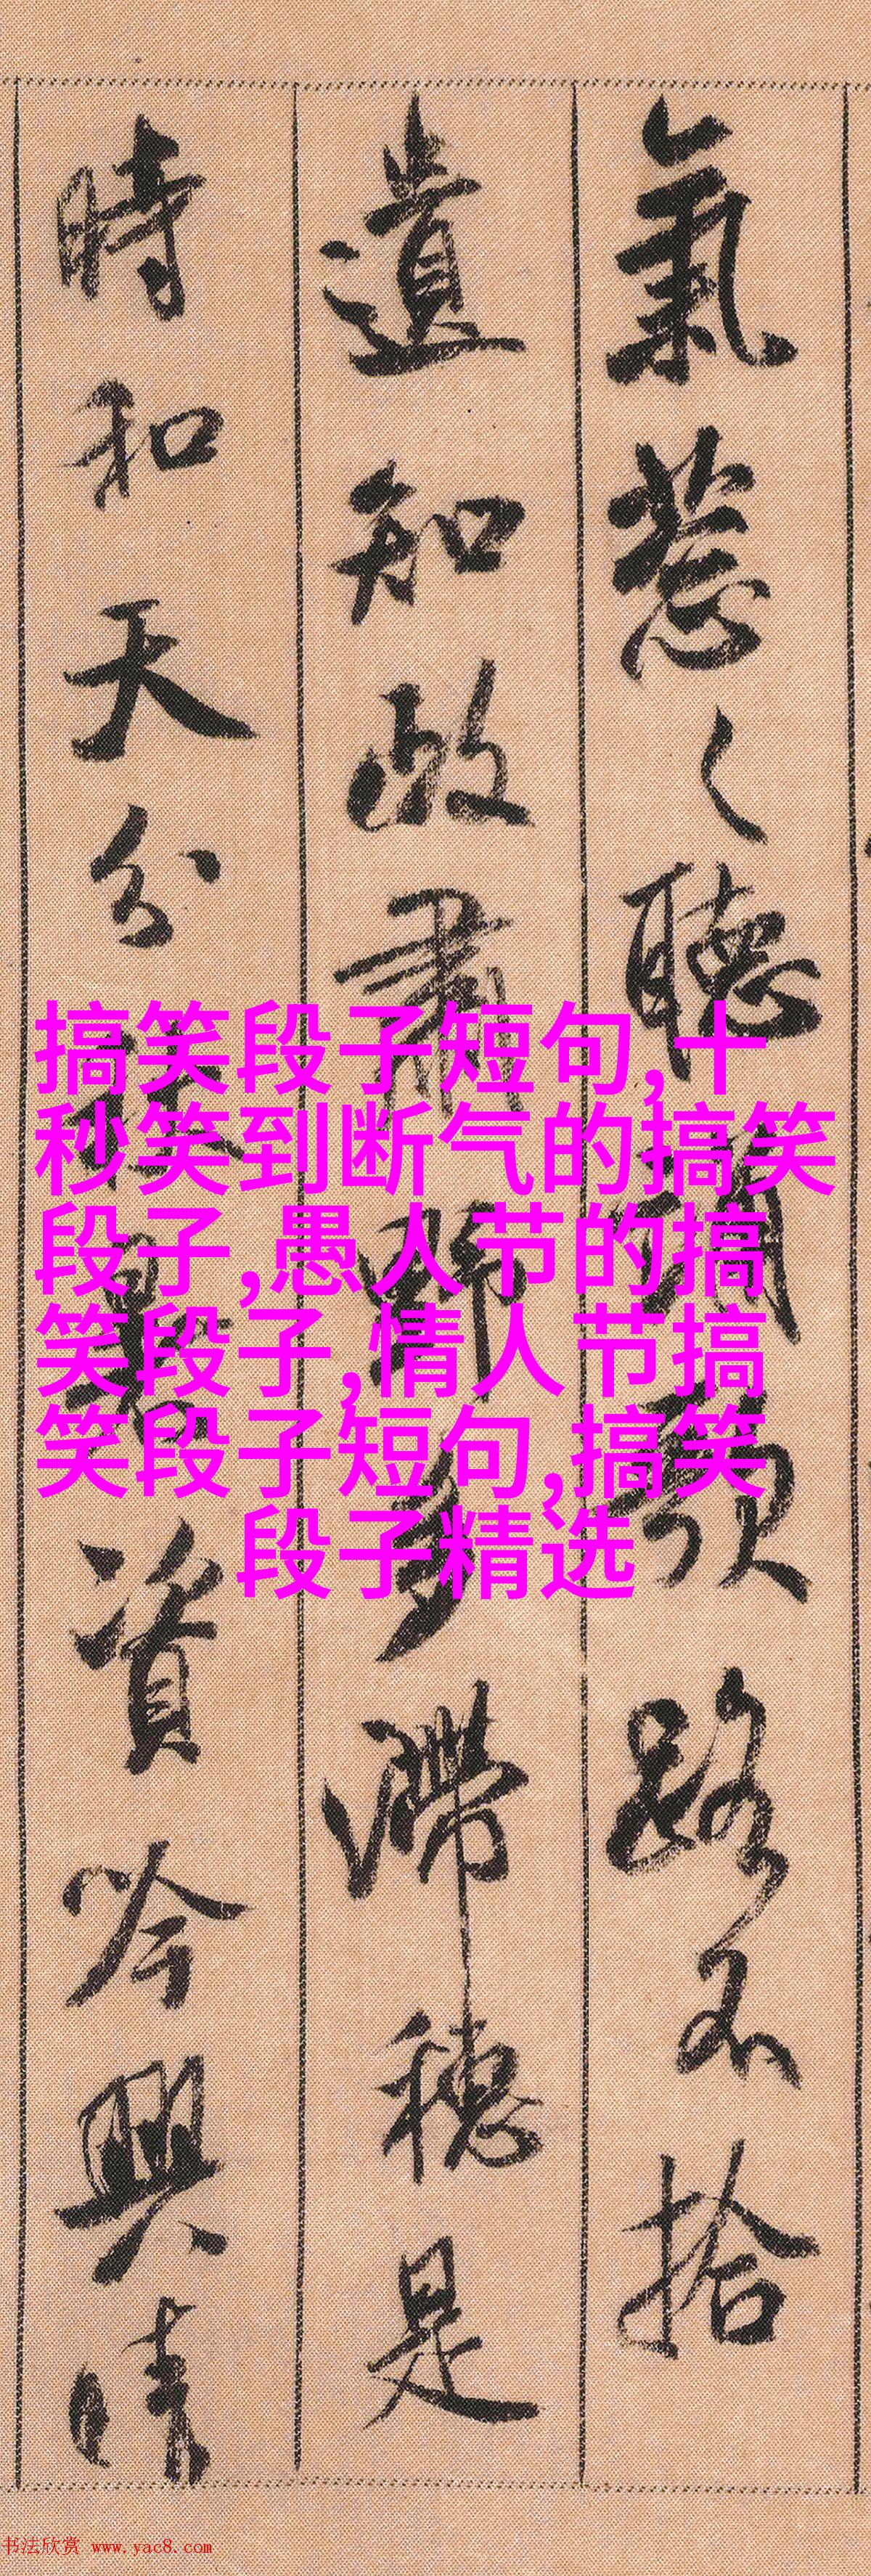 氣葱〻聽誦歌路不拾
遺知政肅野多滯穗是
時和天分秋暑資吟興晴
搞笑段子短句,十
秒笑到断气的搞笑
段子,愚人节的搞
笑段子,情人节搞
笑段子短句,搞笑
段子精选
书法欣赏 www.yac8.com